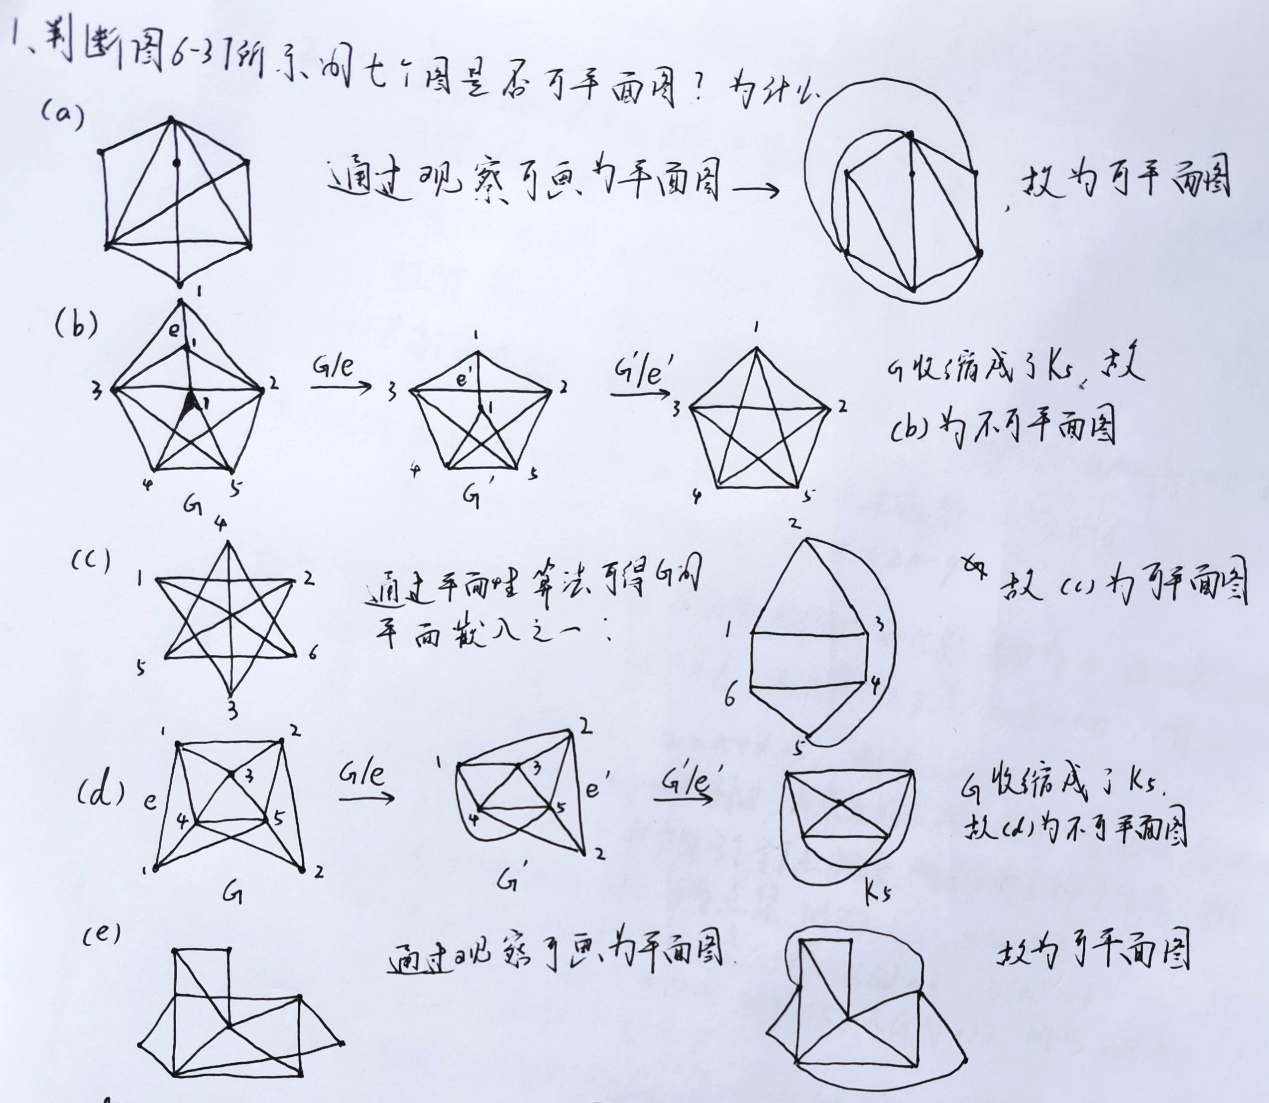 1、判断图6-37所示的七个图是否可平面图?为什么
(a)
通过观察可画为平面图→ ,故为可平面图
(b)
1
e
1
3 2
1
4 5
G
G/e
1
e'
3 2
1
4 5
G'
G'/e'
1
3 2
4 5
G收缩成了K₅,故
(b)为不可平面图
(c)
4
1 2
5 6
3
通过平面性算法可得G的
平面嵌入之一:
2
1 3
6 4
5
故(c)为可平面图
(d)
1 2
3
e 4 5
1 2
G
G/e
1 2
3
4 5 e'
2
G'
G'/e'
K₅
G收缩成了K₅.
故(d)为不可平面图
(e)
通过观察可画为平面图.
故为可平面图